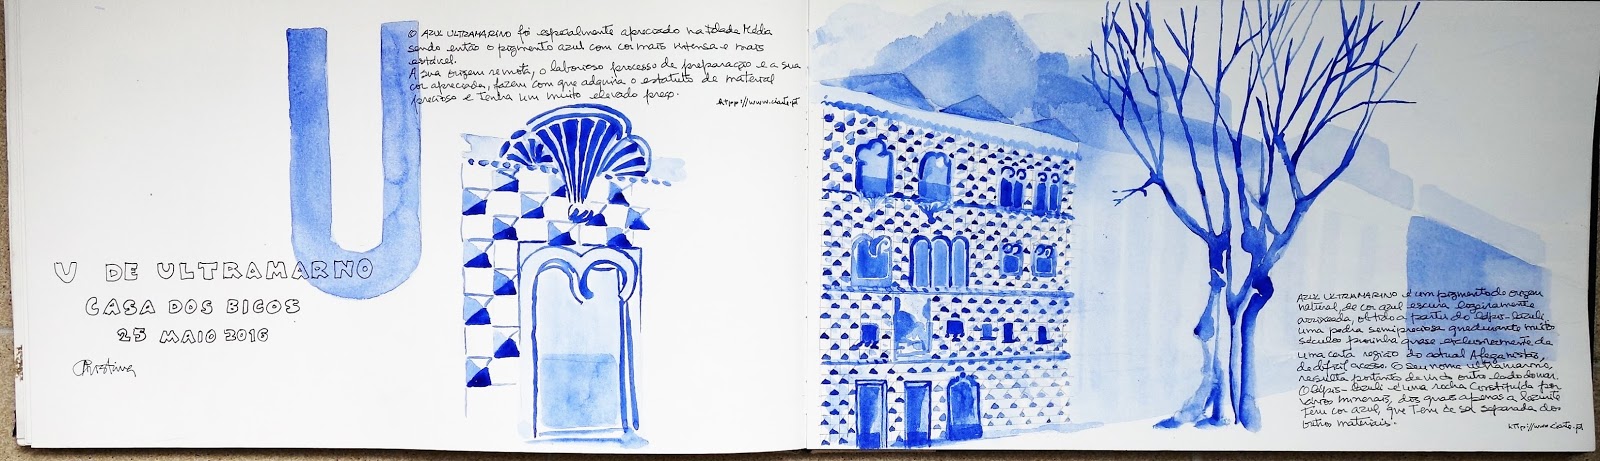 U
O AZUL ULTRAMARINO foi especialmente apreciado na Idade Média
sendo então o pigmento azul com cor mais intensa e mais
estável.
A sua origem remota, o laborioso processo de preparação e a sua
cor apreciada, fazem com que adquira o estatuto de material
precioso e tenha um muito elevado preço.
http://www.ciarte.pt
U DE ULTRAMARNO
CASA DOS BICOS
25 MAIO 2016
AZUL ULTRAMARINO é um pigmento de origem
natural, de cor azul escura ligeiramente
arroxeada, obtido a partir do lápis-lazúli
uma pedra semipreciosa que durante muito
séculos provinha quase exclusivamente da
uma certa região do actual Afeganistão,
de difícil acesso. O seu nome ultramarino,
resulta portanto de vir do outro lado do mar.
O lápis-lazúli é uma rocha constituída por
vários minerais, dos quais apenas a lazurite
tem cor azul, que tem de ser separada dos
outros materiais.
http://www.ciarte.pt